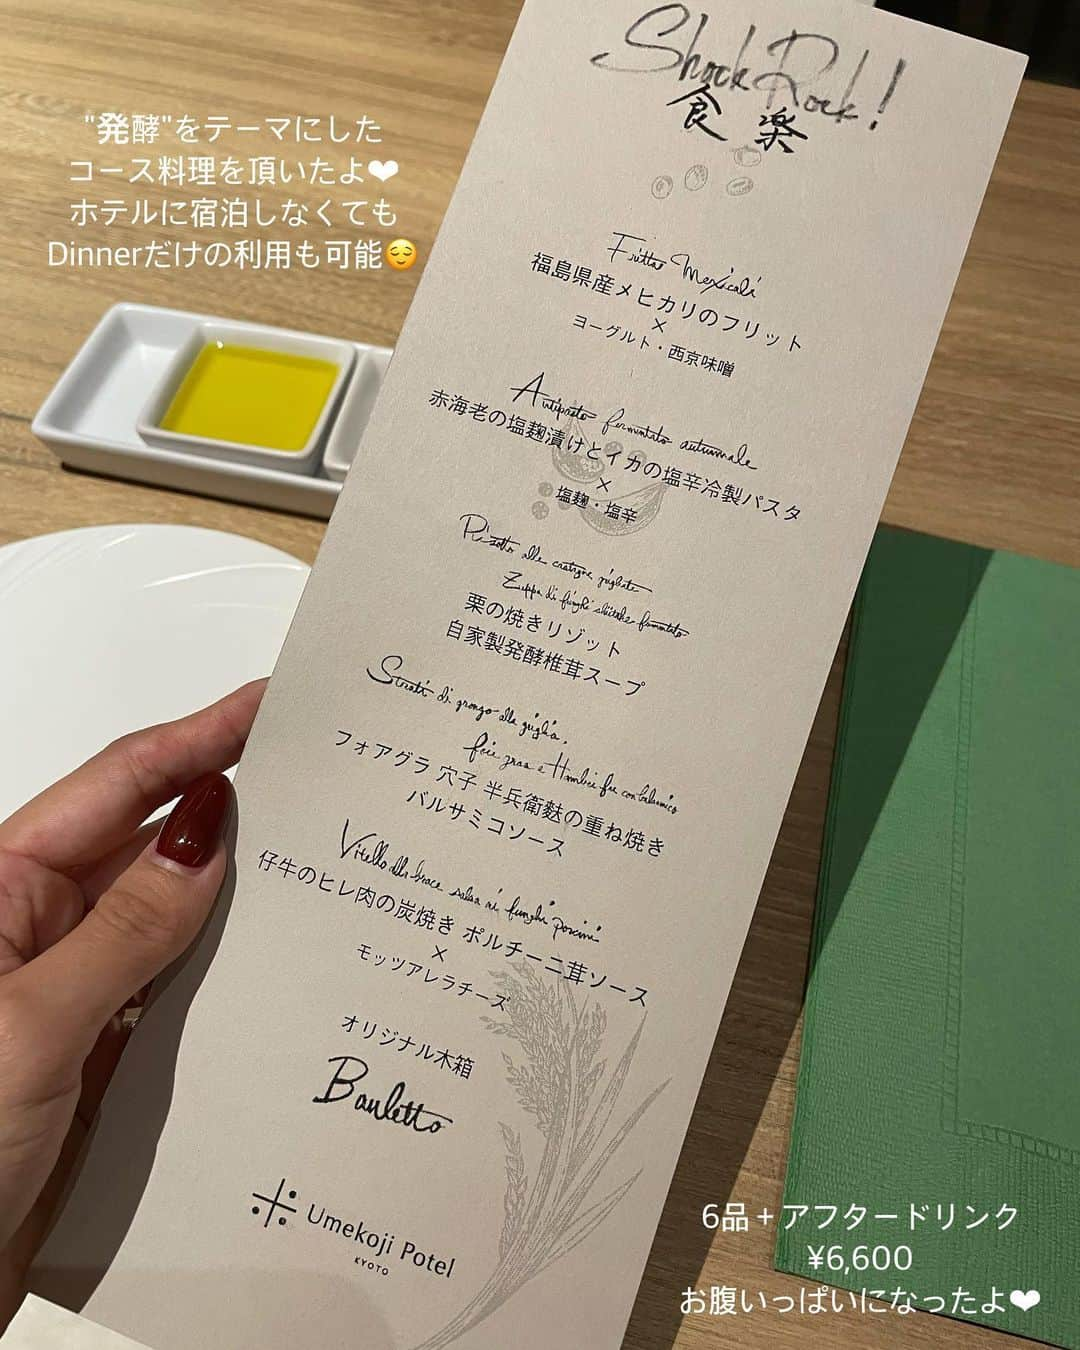 Shock Rock!
食楽
"発酵"をテーマにした
コース料理を頂いたよ❤
ホテルに宿泊しなくても
Dinnerだけの利用も可能😌
福島県産メヒカリのフリット
×
ヨーグルト・西京味噌
Antipasto fermentato autunnale
赤海老の塩麹漬けとイカの塩辛冷製パスタ
×
塩麹・塩辛
Zuppa di funghi shiitake fermentato
栗の焼きリゾット
自家製発酵椎茸スープ
Strati di grongo alla griglia,
フォアグラ 穴子 半兵衛麩の重ね焼き
バルサミコソース
Vitello alla brace salsa ai funghi porcini
仔牛のヒレ肉の炭焼き ポルチーニ茸ソース
×
モッツアレラチーズ
オリジナル木箱
Bauletto
Umekoji Potel
KYOTO
6品＋アフタードリンク
¥6,600
お腹いっぱいになったよ❤